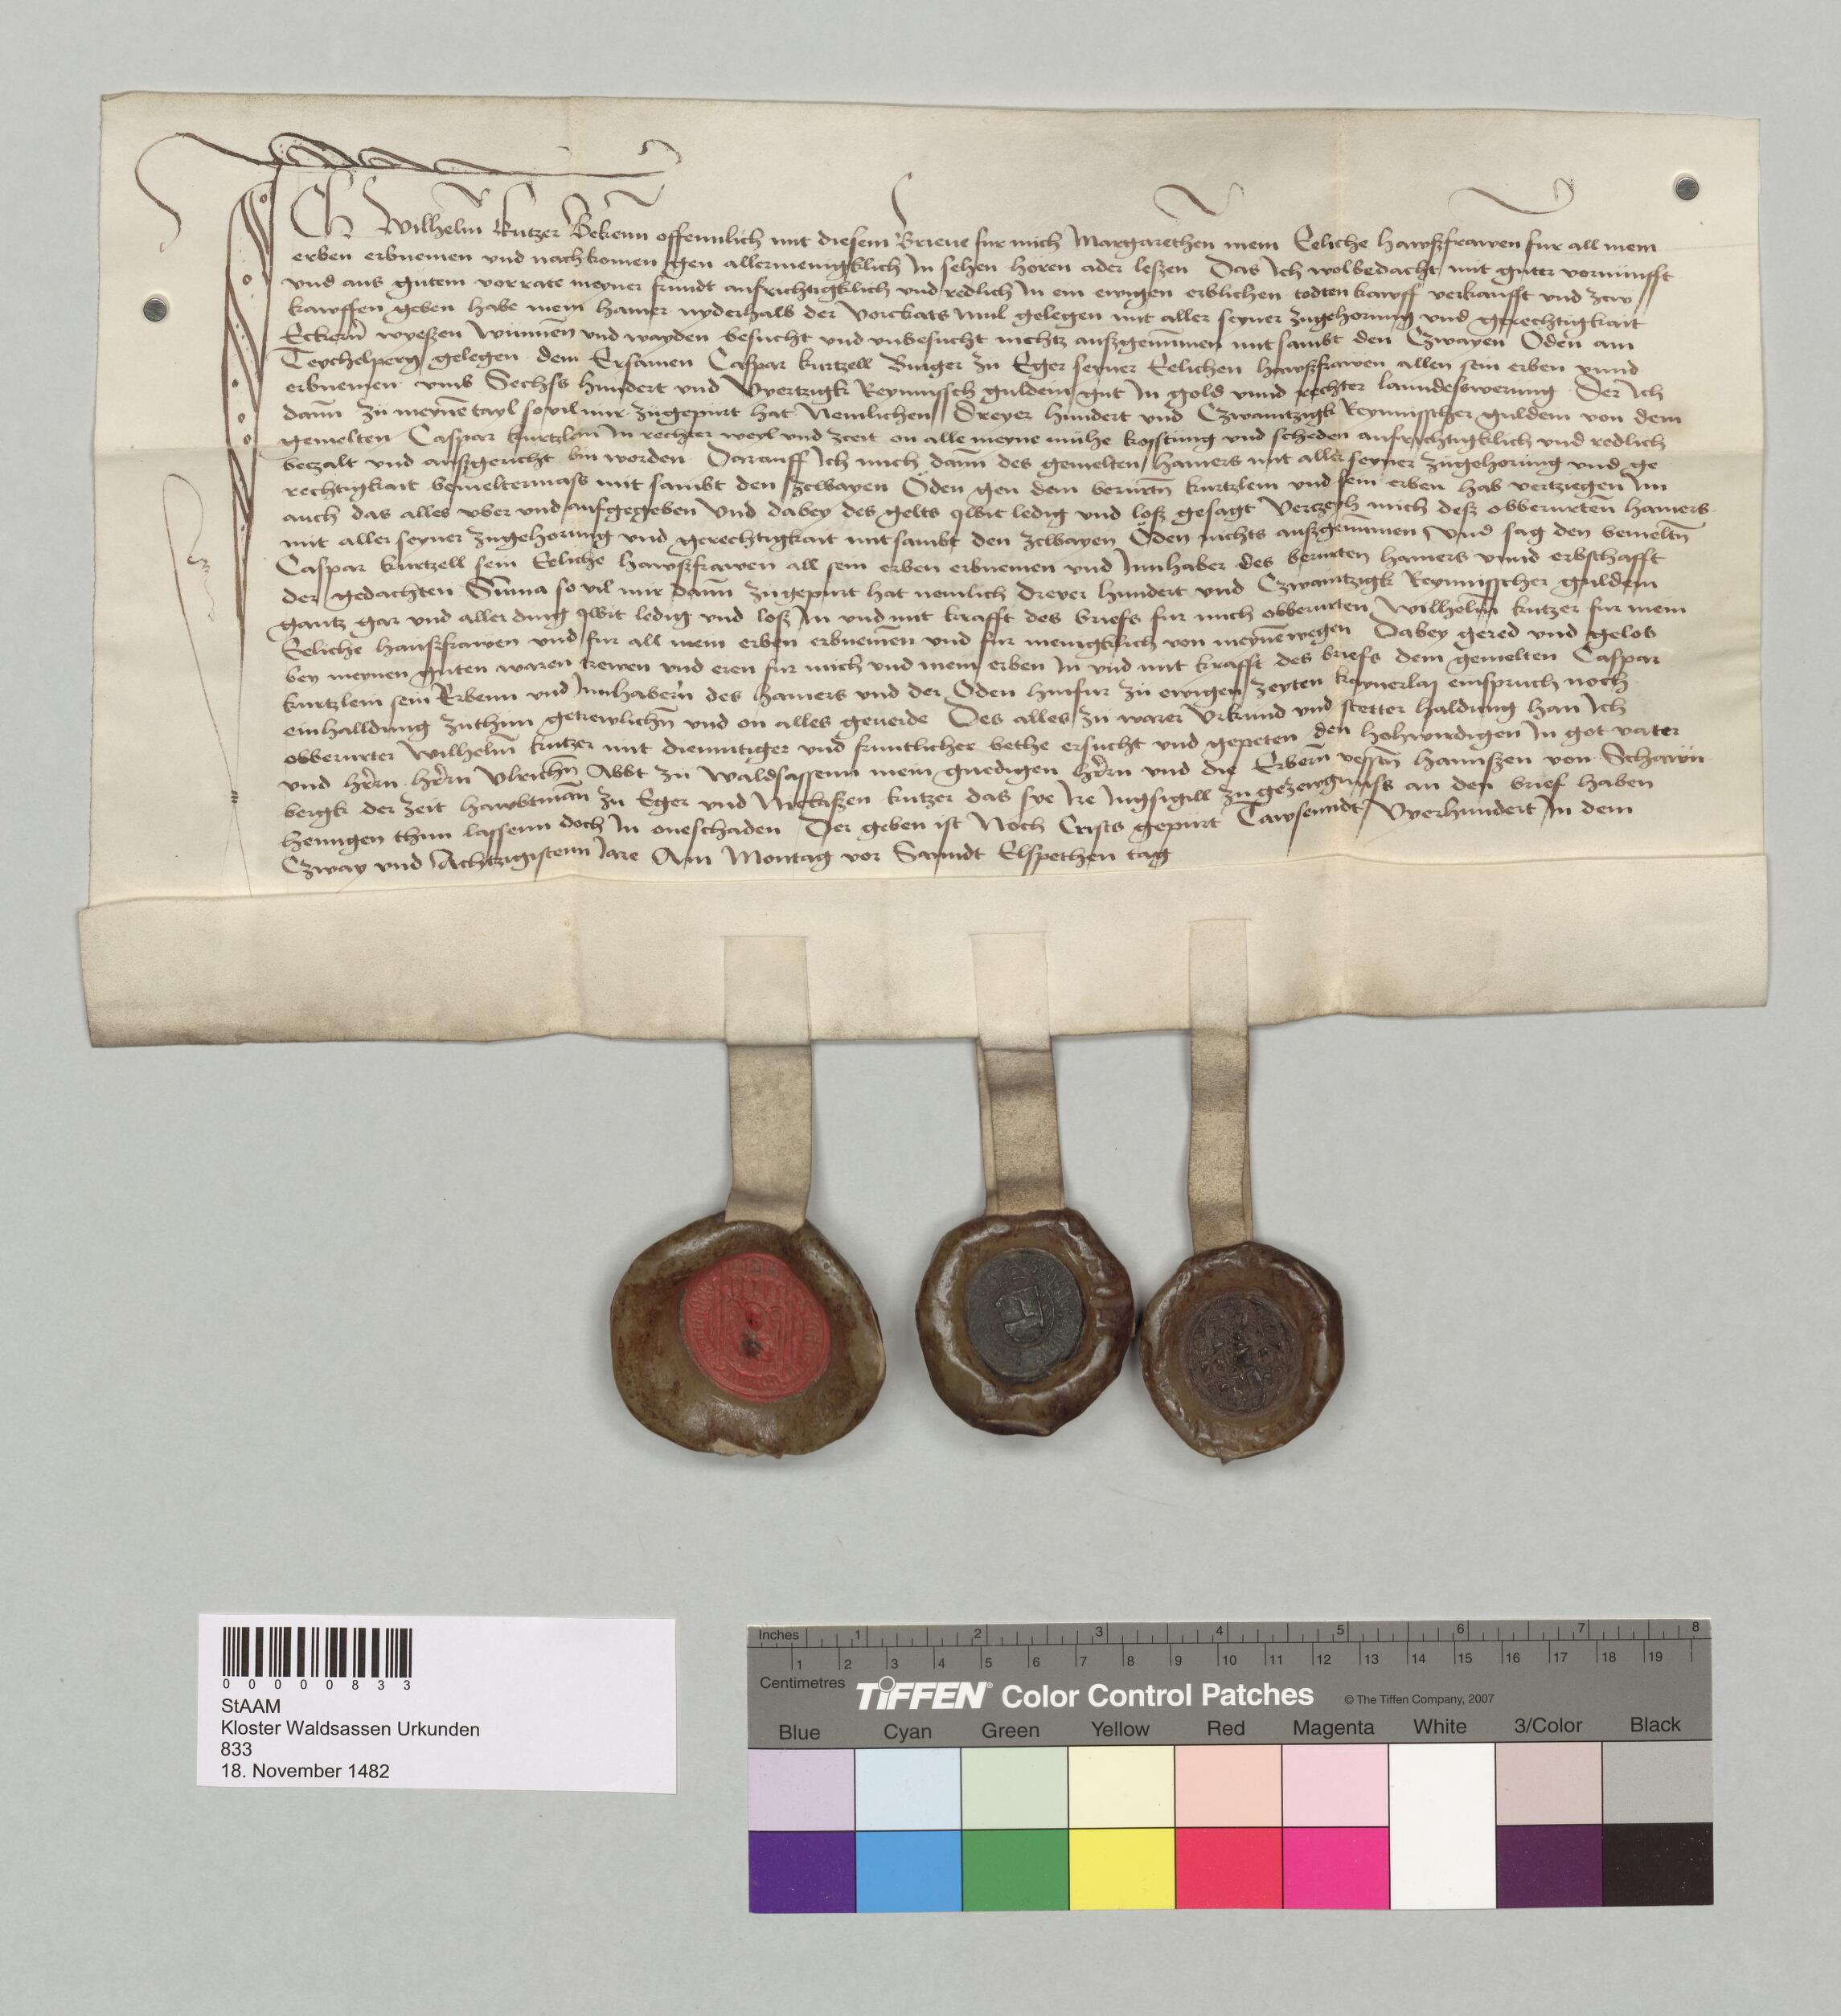 Ich Wilhelm kutzer Bekenn offennlich mit diesem Brieue fur mich Margarethen mein Eeliche hawßfrawen fur all mein
erben erbnemen vnd nachkomen gen allermenigklich In sehen horen ader leßen Das Ich wolbedacht mit guter vornunfft
vnd aus gutem vorrate meyner frundt aufrichtigklich vnd redlich In ein ewigen erblichen todten kawff verkaufft vnd zcw
kawffen geben habe mein hamer nyderhalb der Vorckats mul gelegen mit aller seyner zugehorung vnd gerechtigkait
Eckern wyeßen Wunnen vnd wayden besucht vnd vnbesucht nichtz außgenummen mitsambt den Czwayen Öden am
Teychelperg gelegen dem Ersamen Caspar kurtzell Burger zu Eger seyner Eelichen hawßfrawen allen sein erben vnnd
erbnemen vmb Sechß hundert vnd Vyertzigk Reynnissch guldein gut In gold vnnd rechter lanndeßwerung Der Ich
dann zu meyne tayl souil mir zugepurt hat Nemlichen Dreyer hundert vnd Czwanntzigk Reynnisscher guldein von dem
gemelten Caspar kurtzlein In rechter weyl vnd zceit on alle meyne muhe kosstung vnd scheden aufrichtigklich vnd redlich
betzalt vnd außgericht bin worden Darauff Ich mich dann des gemelten hamers mit aller seyner zugehorung vnd ge
rechtigkait bemeltermaß mit sambt den zcwayen Öden gen dem berurtn kurtzlein vnd sein erben hab vertziegen Im
auch das alles vber vnd aufgegeben Vnd dabey des gelts qwit ledig vnd loß gesagt Verczeyh mich deß obberurten hamers
mit aller seyner zugehorung vnd gerechtigkait mitsambt den zcwayen Öden nichts außgenummen Vnd sag den bemeltn
Caspar kurtzell sein Eeliche hawßfrawen all sein erben erbnemen vnd Innhaber des berurten hamers vnnd erbschafft
der gedachten Suma so vil mir dann zugepurt hat nemlich dreyer hundert vnd Czwanntzigk Reynnisscher guldein
gantz gar vnd aller dung qwit ledig vnd loß In vnd mit krafft des briefs fur mich obberurten Wilhelm kutzer fur mein
Eeliche haußfrawen vnd fur all mein erben erbnemen vnd fur menigklich von meyne wegen Dabey gered vnd gelob
bey meynen guten waren trewen vnd eren fur mich vnd mein erben In vnd mit krafft des briefs dem gemelten Caspar
kurtzlein sein Erbenn vnd Innhabern des hamers vnd der Öden hinfur zu ewigen zeyten kaynerlaj einspruch noch
einhalldung zuthun getrewlichn vnd on alles geuerde Des alles zu warer Vrkund vnd stetter haldung han Ich
obberurter Wilhelm kutzer mit diemutiger vnd fruntlicher bethe ersucht vnd gepeten den hohwirdigen In got vater
vnd hern hern Vlrichn Abbt zu Waldsassenn mein gnedigen hern vnd die Erbern vesstn hannßen von Schawn
bergk der zeit hawbtman zu Eger vnd Nicklaßen kutzer das sye Ire Ingsigill zu gezewgnuss an den brief haben
henngen thun lassenn doch In oneschaden Der geben ist Noch Crists gepurt Tawsenndt Vyerhundert In dem
Czway vnd Achtzigistenn Jare Am Montag vor Sanndt Elspethen tag
0 0 0 0 0 8 3 3
StAAM
Kloster Waldsassen Urkunden
833
18. November 1482
Inches 1 2 3 4 5 6 7 8
1 2 3 4 5 6 7 8 9 10 11 12 13 14 15 16 17 18 19
Centimetres
TIFFEN® Color Control Patches © The Tiffen Company, 2007
Blue Cyan Green Yellow Red Magenta White 3/Color Black